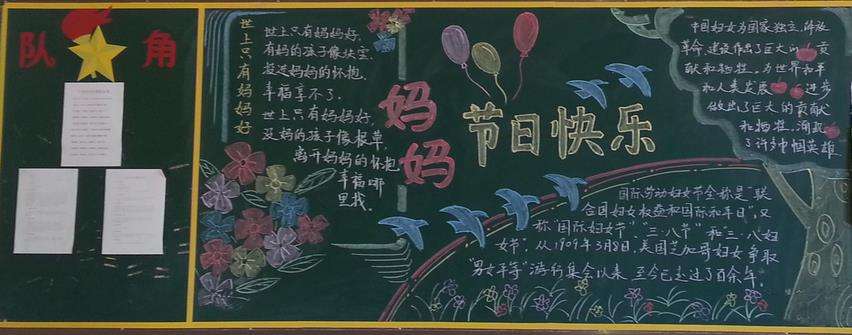 队角
世上只有妈妈好
世上只有妈妈好,
有妈的孩子像块宝,
投进妈妈的怀抱,
幸福享不了,
世上只有妈妈好,
没妈的孩子像根草,
离开妈妈的怀抱
幸福哪
里找。
妈妈
节日快乐
中国妇女为国家独立、解放
革命、建设作出了巨大的贡
献和牺牲,为世界和平
和人类发展进步
做出了巨大的贡献
和牺牲,涌现
了许多巾帼英雄
国际劳动妇女节全称是“联
合国妇女权益和国际和平日”,又
称“国际妇女节”、“三·八节”和三·八妇
女节”。从1909年3月8日,美国芝加哥妇女争取
“男女平等”游行集会以来,至今已走过了百余年,